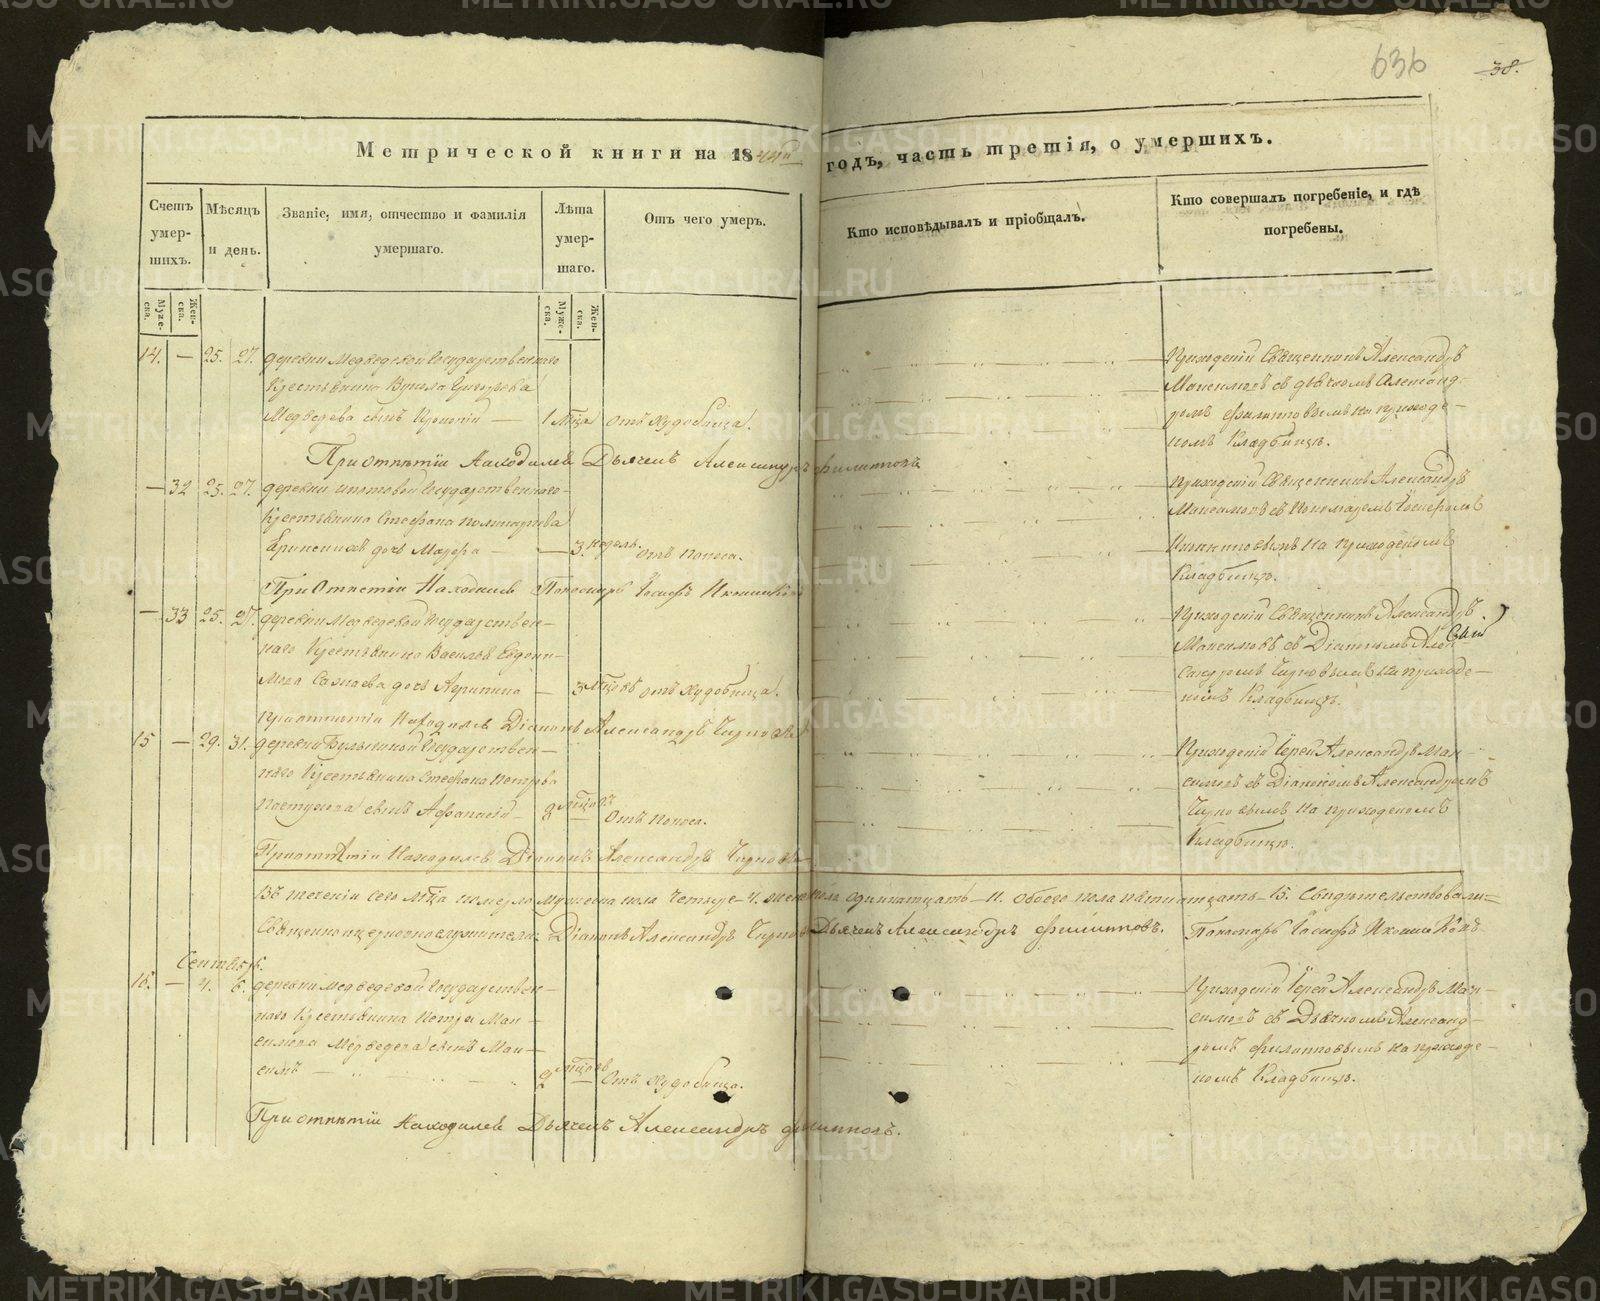 636
38.
Метрической книги на 1844й годъ, часть третія, о умершихъ.
Счетъ умер-шихъ.
Мѣсяцъ и день.
Званіе, имя, отчество и фамилія умершаго.
Лѣта умер-шаго.
Отъ чего умеръ.
Кто исповѣдывалъ и пріобщалъ.
Кто совершалъ погребеніе, и гдѣ погребены.
Муже-ска.
Жен-ска.
Муже-ска.
Жен-ска.
14. — 25. 27. деревни Медведевой Государственнаго
Крестьянина Григорьева
Медведева сынъ — 1 Мѣца отъ худобища.
Приходскій Священникъ Александръ
Максимовъ съ дьячкомъ Александ-
ромъ Филипповымъ на приходс-
комъ Кладбищѣ.
При отпѣтіи Находился Дьячекъ Александръ Филипповъ
— 32 25. 27. деревни Государственнаго
Крестьянина Стефана Поликарпова
дочь — 3. недель. отъ поноса.
Приходскій Священникъ Александръ
Максимовъ съ Пономаремъ Іосифомъ
на приходскомъ
Кладбищѣ.
При Отпетіи Находился Пономарь Іосифъ
— 33 25. 27. деревни Медведевой Государствен-
наго Крестьянина Василья Евдоки-
мова дочь Агрипина — 3 мѣцовъ отъ худобища.
Приходскій Священникъ Александръ
Максимовъ съ Діакономъ Алек
сандромъ Чирковымъ на приходс-
комъ Кладбищѣ.
При отпѣтіи Находился Діаконъ Александръ Чирковъ
15 — 29. 31. деревни Государствен-
наго Крестьянина Стефана Петрова
Пастухова сынъ Афанасій — 2 мѣцовъ отъ поноса.
Приходскій Іерей Александръ Мак-
симовъ съ Діакономъ Александромъ
Чирковымъ на приходскомъ
Кладбищѣ.
При отпѣтіи Находился Діаконъ Александръ Чирковъ
Въ теченіи сего мѣца померло мужеска пола четыре — 4. женска пола одинатцать — 11. обоего пола пятнатцать — 15. Свидетельствовали =
Священноцерковнослужители: Діаконъ Александръ Чирковъ Дьячекъ Александръ Филипповъ. Пономарь Іосифъ
Сентябрь.
16. — 4. 6. деревни Медведевой Государствен-
наго Крестьянина Петра Мак-
симова Медведева сынъ Мак-
симъ — 2 мѣцовъ Отъ худобища.
Приходскій Іерей Александръ Мак-
симовъ съ Дьячкомъ Александ-
ромъ Филипповымъ на приходс-
комъ Кладбищѣ.
При отпѣтіи Находился Дьячекъ Александръ Филипповъ.
METRIKI.GASO-URAL.RU